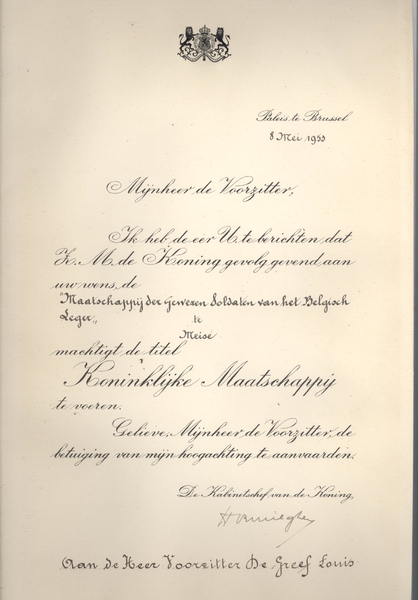 Paleis te Brussel
8 Mei 1953
Mijnheer de Voorzitter,
Ik heb de eer U te berichten dat
Z. M. de Koning gevolg gevend aan
uw wens, de
"Maatschappij der Gewezen Soldaten van het Belgisch
Leger,, te
Meise
machtigt de titel
Koninklijke Maatschappij
te voeren.
Gelieve, Mijnheer de Voorzitter, de
betuiging van mijn hoogachting te aanvaarden.
De Kabinetschef van de Koning,
Aan de Heer Voorzitter De Greef Louis